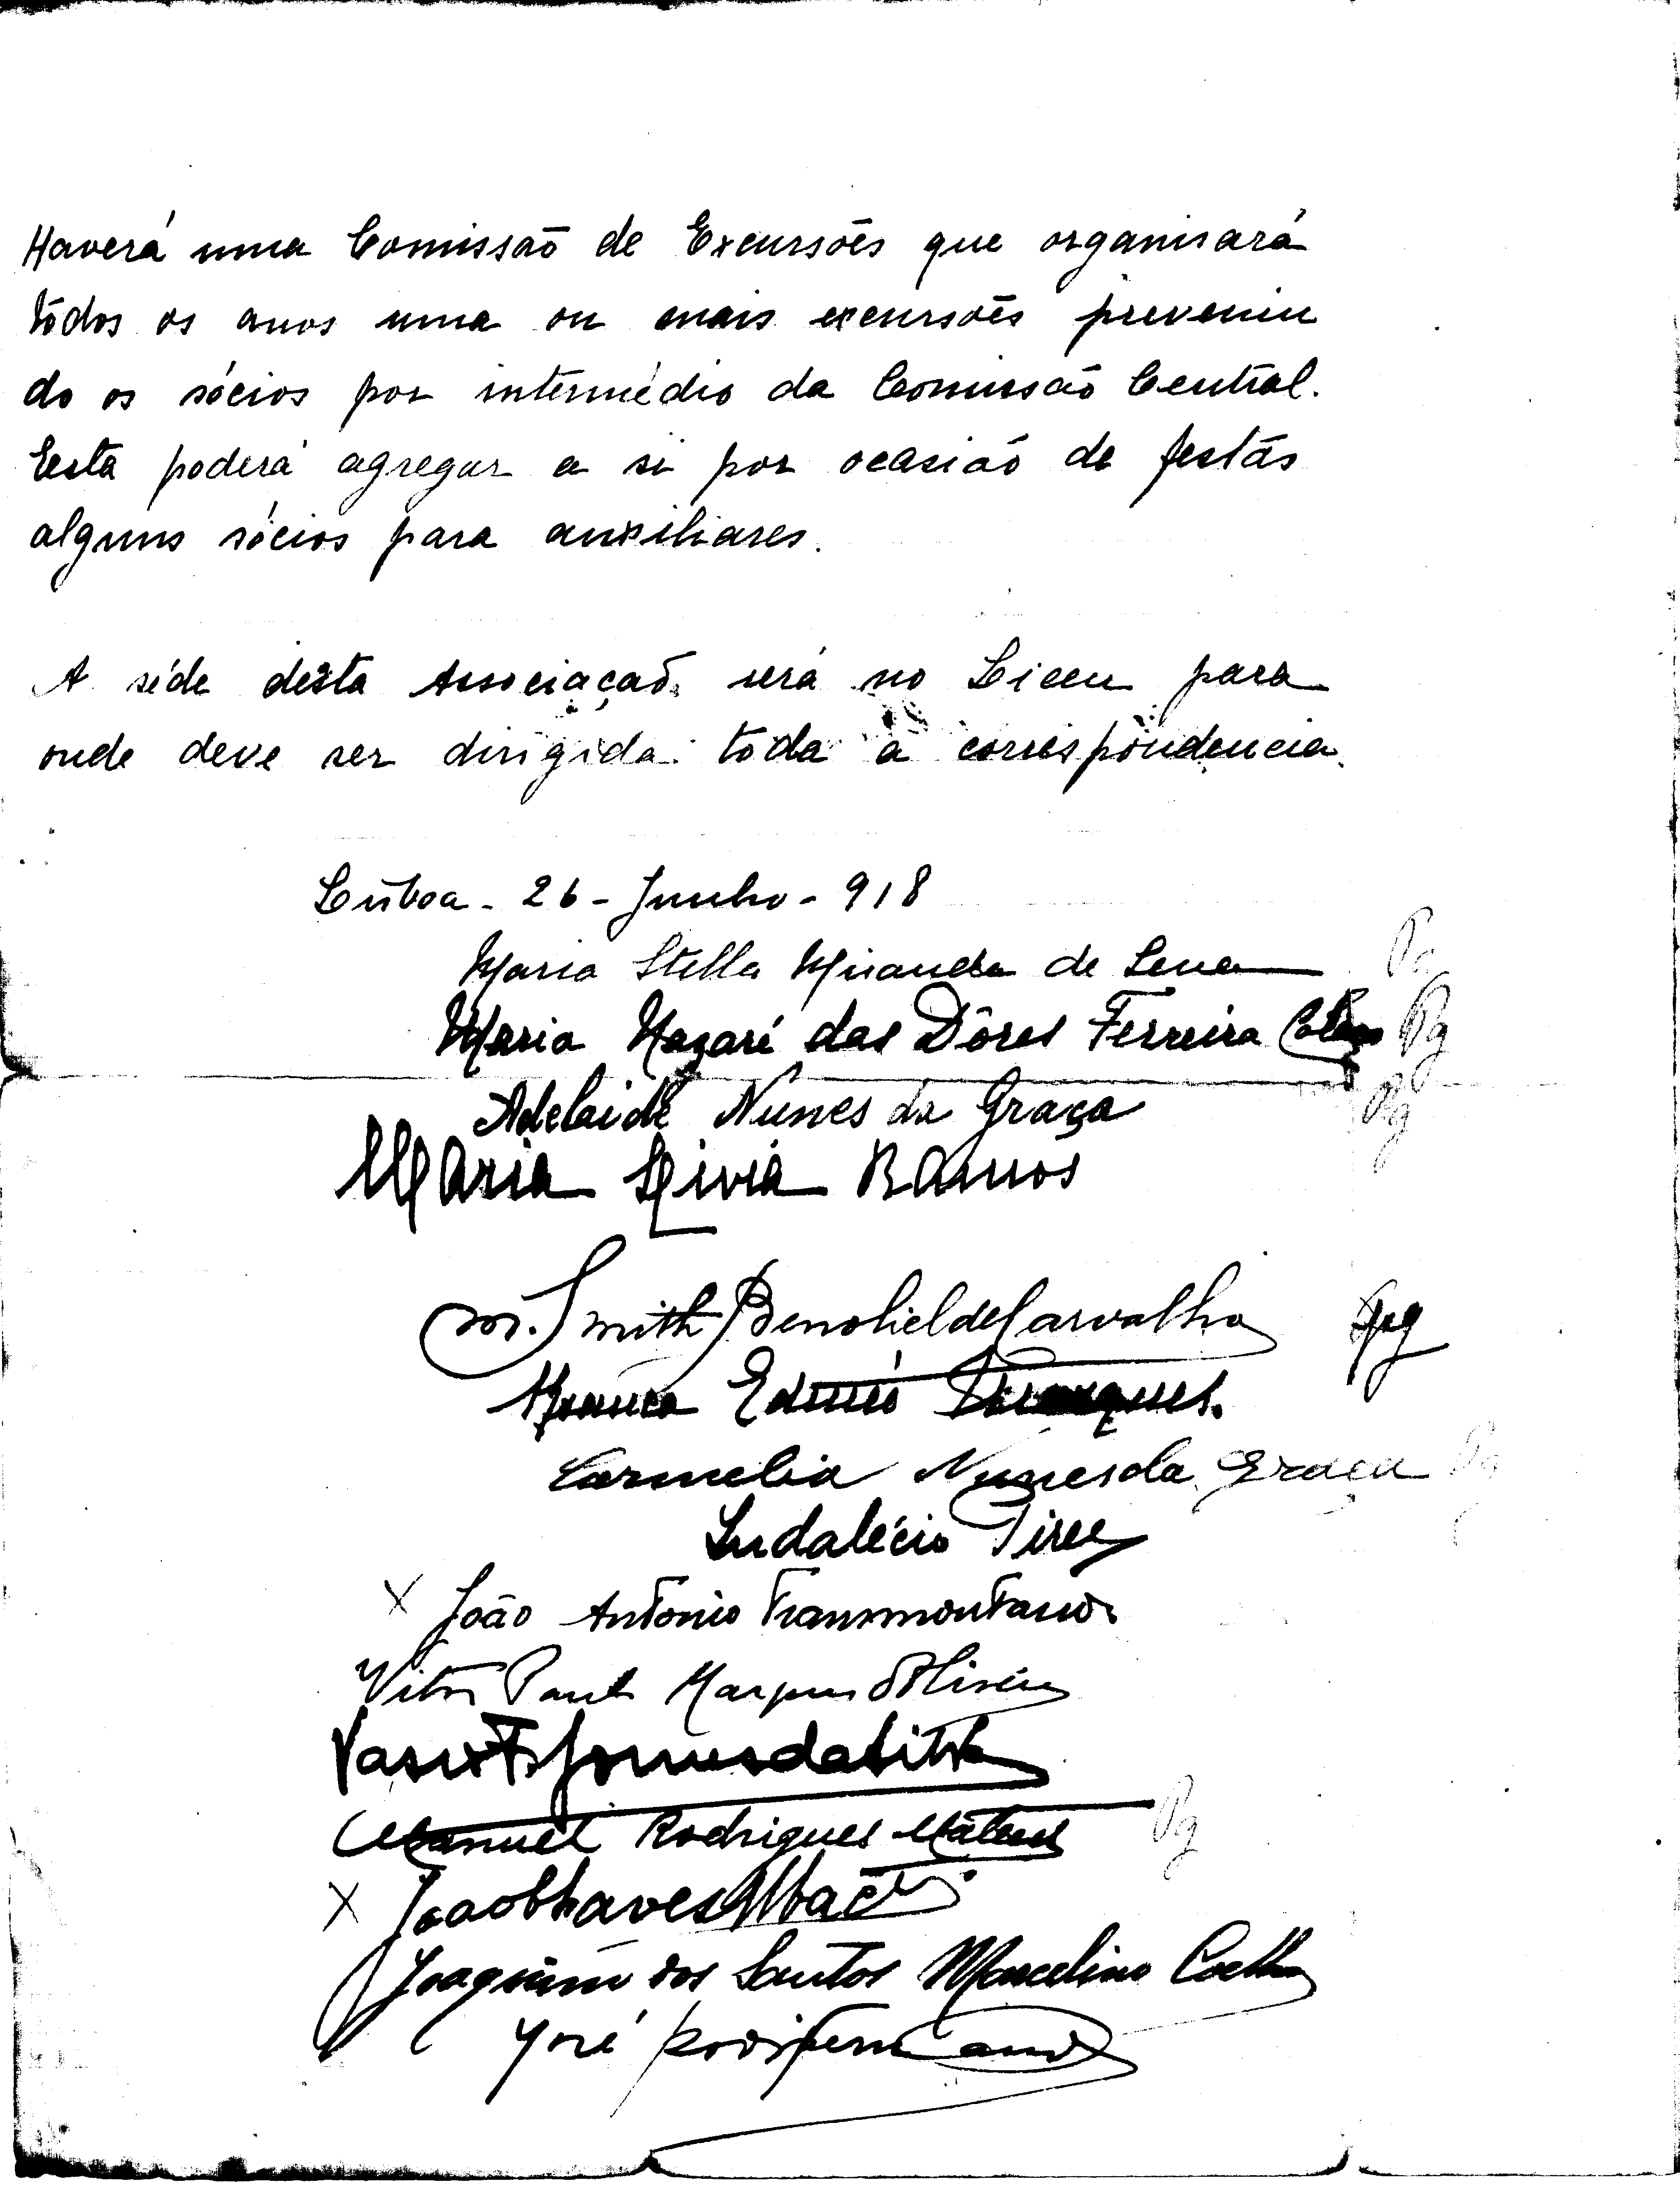 Haverá uma Comissão de Excursões que organisará
tôdos os anos uma ou mais excursões prevenin
do os sócios por intermédio da Comissão Central.
Esta poderá agregar a si por ocasião de festas
alguns sócios para auxiliares.
A séde desta Associação será no Liceu para
onde deve ser dirigida toda a correspondencia.
Lisboa - 26 - Junho - 918
Maria Stella Miranda de Sena
Maria Nazaré das Dôres Ferreira
Pg
Adelaide Nunes da Graça
Pg
Maria Livia Ramos
M. Smith Benoliel de Carvalho
Pg
Branca Edméo Marques.
Carmelia Nunes da Graça
Pg
Indalécio Pires
X João Antonio Transmontano
Vitor Paulo Marques d'Oliveira
Vasco F. Gomes da Silva
Manuel Rodrigues Mateus
Pg
X João Chaves
Joaquim dos Santos Marcelino Coelho
José